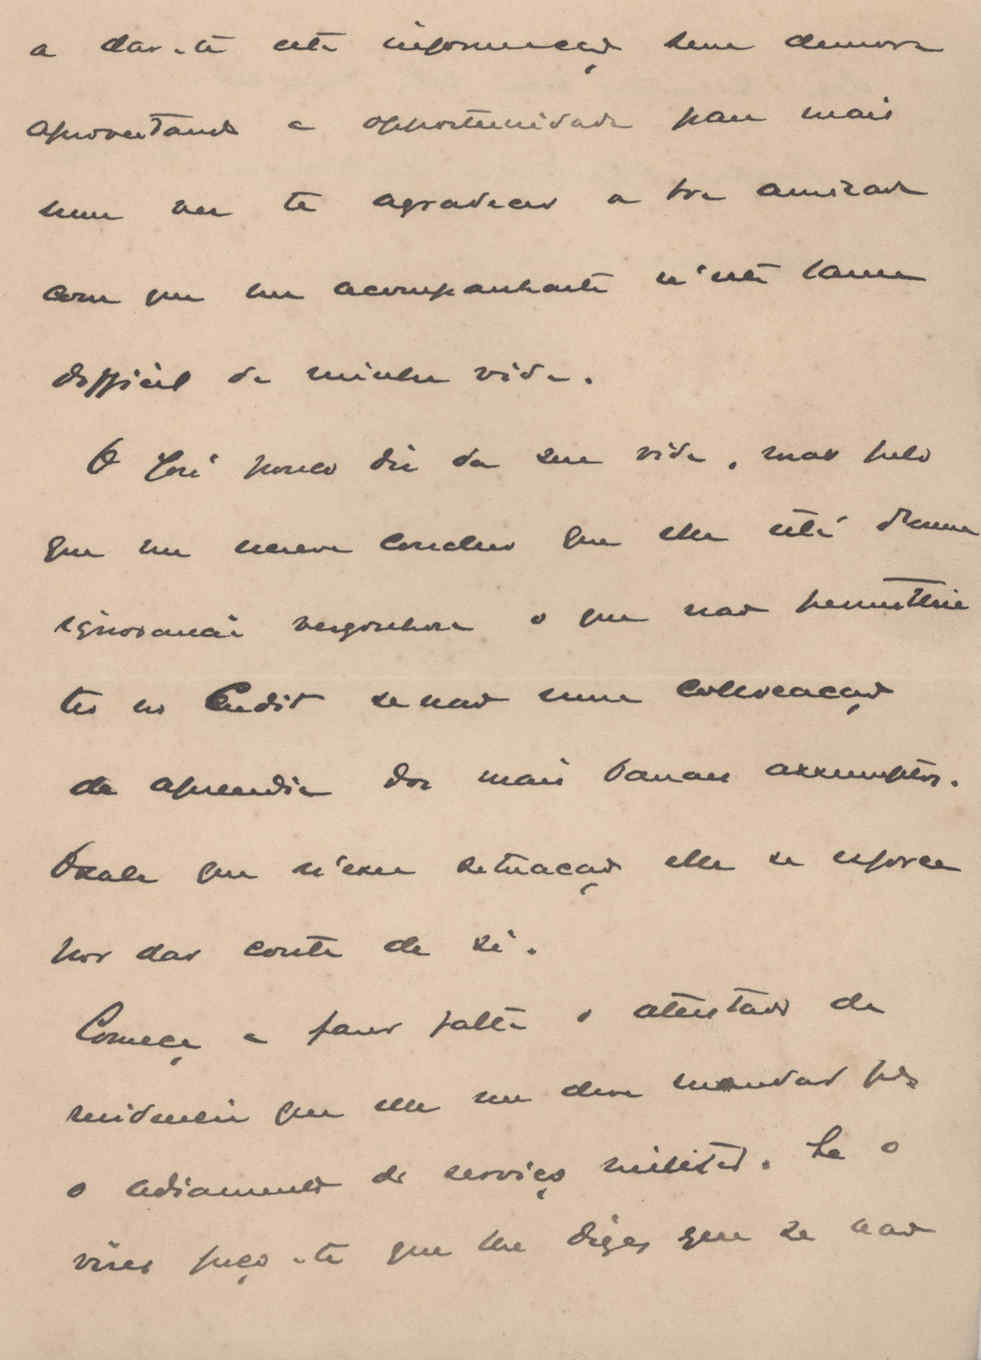 a dar-te esta informação sem demora
aproveitando a opportunidade para mais
uma vez te agradecer a tua amizade
com que me acompanhaste n'este lance
difficil da minha vida.
O José pouco diz da sua vida, mas pelo
que me escreve concluo que elle está d'uma
ignorancia vergonhosa o que não permittirá
ter no Credit senão uma collocação
de aprendiz dos mais banaes assumptos.
Oxalá que n'essa situação elle se esforce
por dar conta de si.
Começa a fazer falta o atestado de
residencia que elle me deve mandar para
o adiamento do serviço militar. Se o
vires peço-te que lhe digas que se não